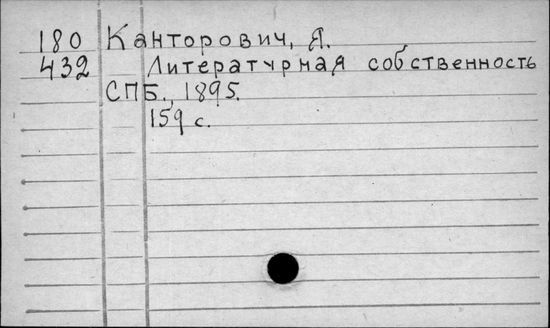 180 Канторович, Я.
432 Литературная собственность
СПБ., 1895.
159 с.